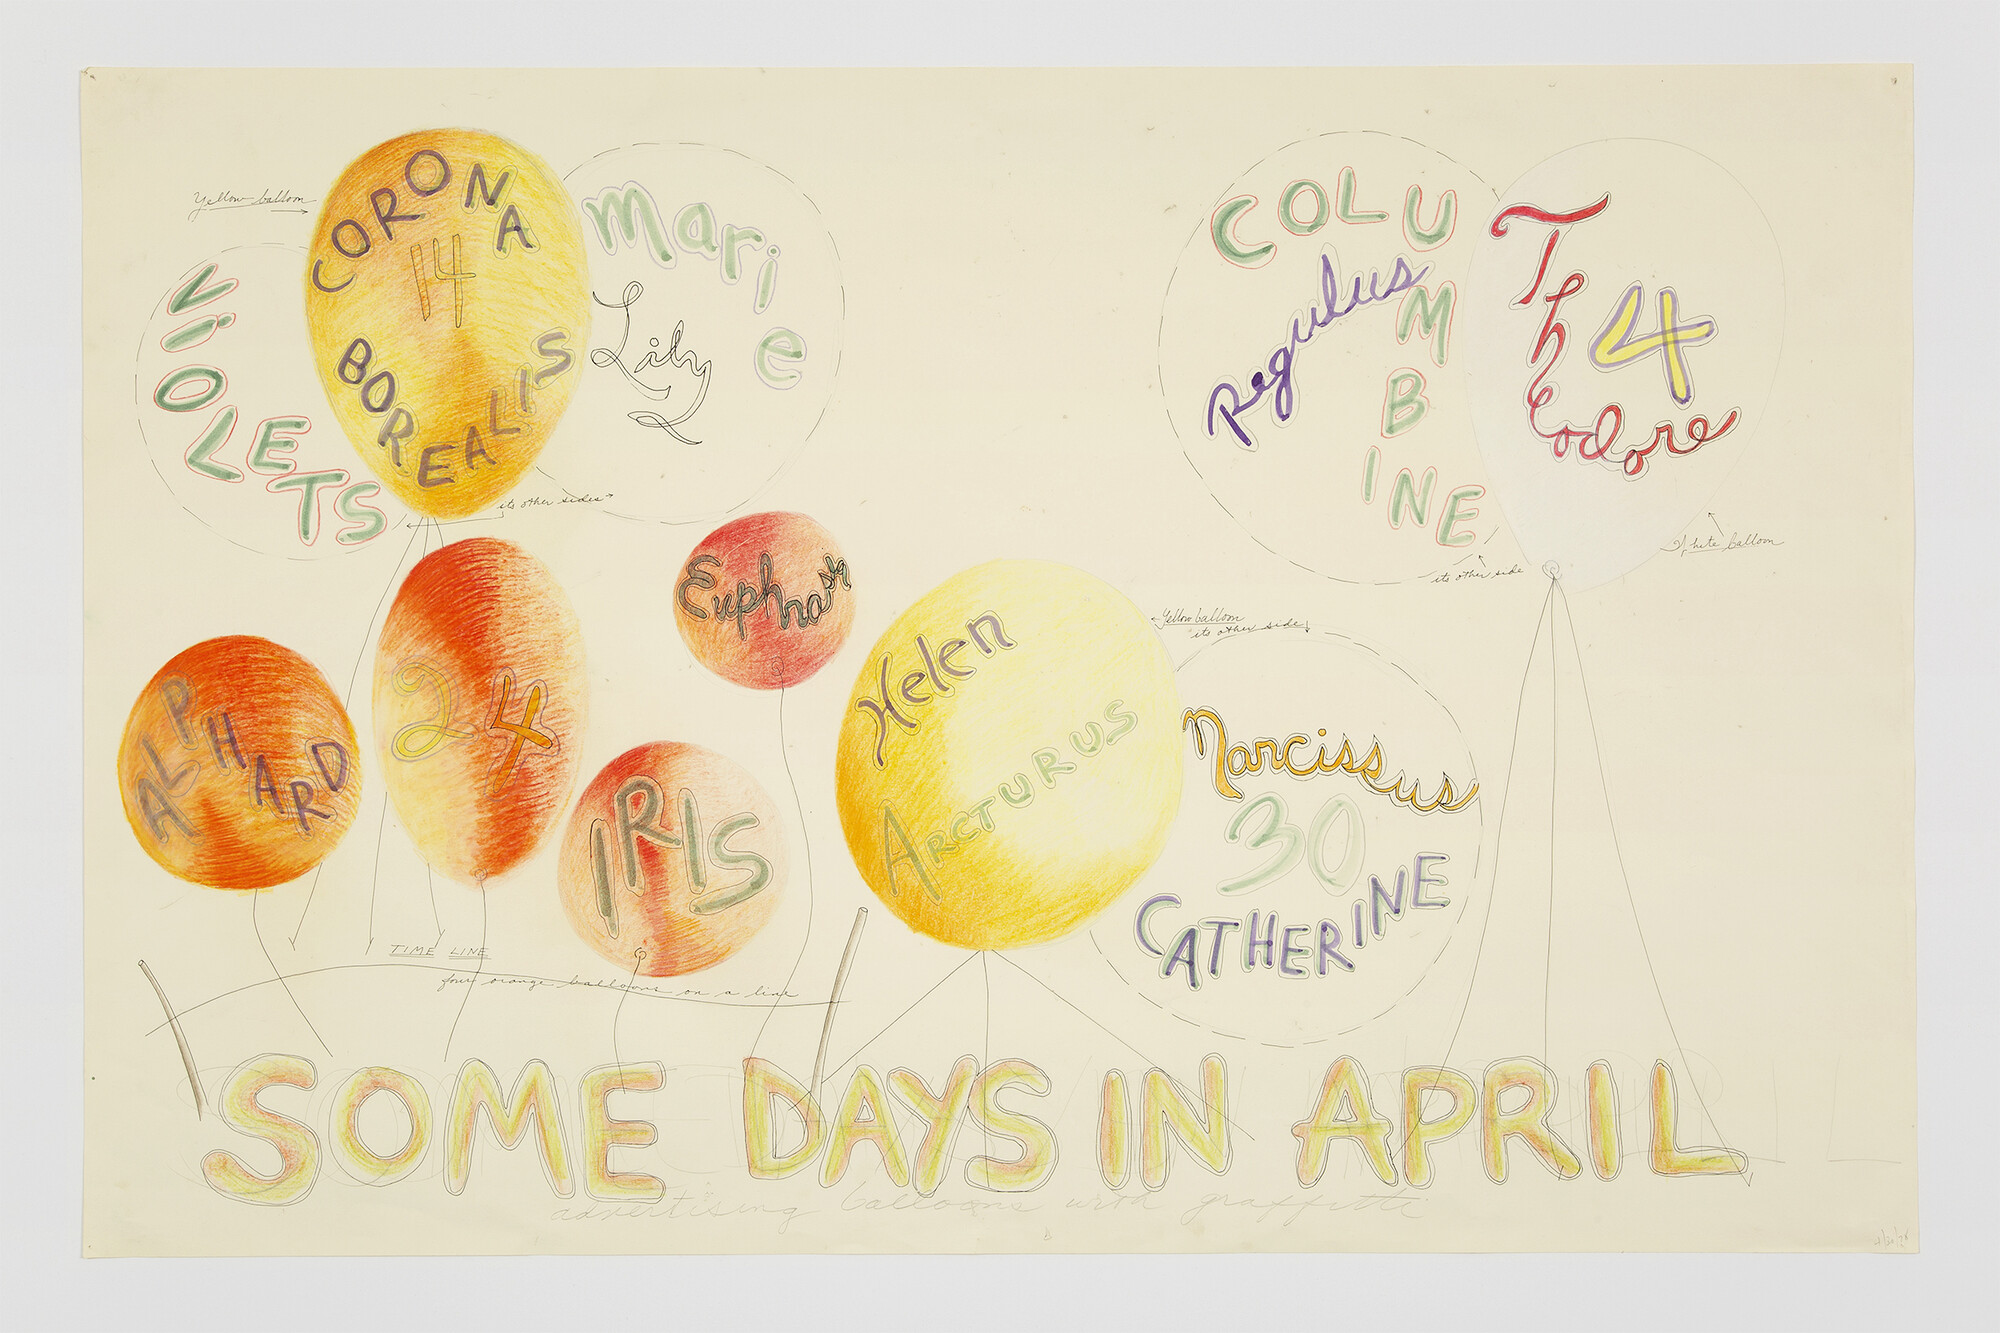 Yellow balloon
CORONA
14
BOREALIS
VIOLETS
Marie
Lily
its other sides
COLUMBINE
Regulus
Theodore
4
its other side
White balloon
ALPHARD
24
Euphrasia
IRIS
Helen
ARCTURUS
Yellow balloon
its other side
Narcissus
30
CATHERINE
TIME LINE
four orange balloons on a line
SOME DAYS IN APRIL
advertising balloons with graffitti